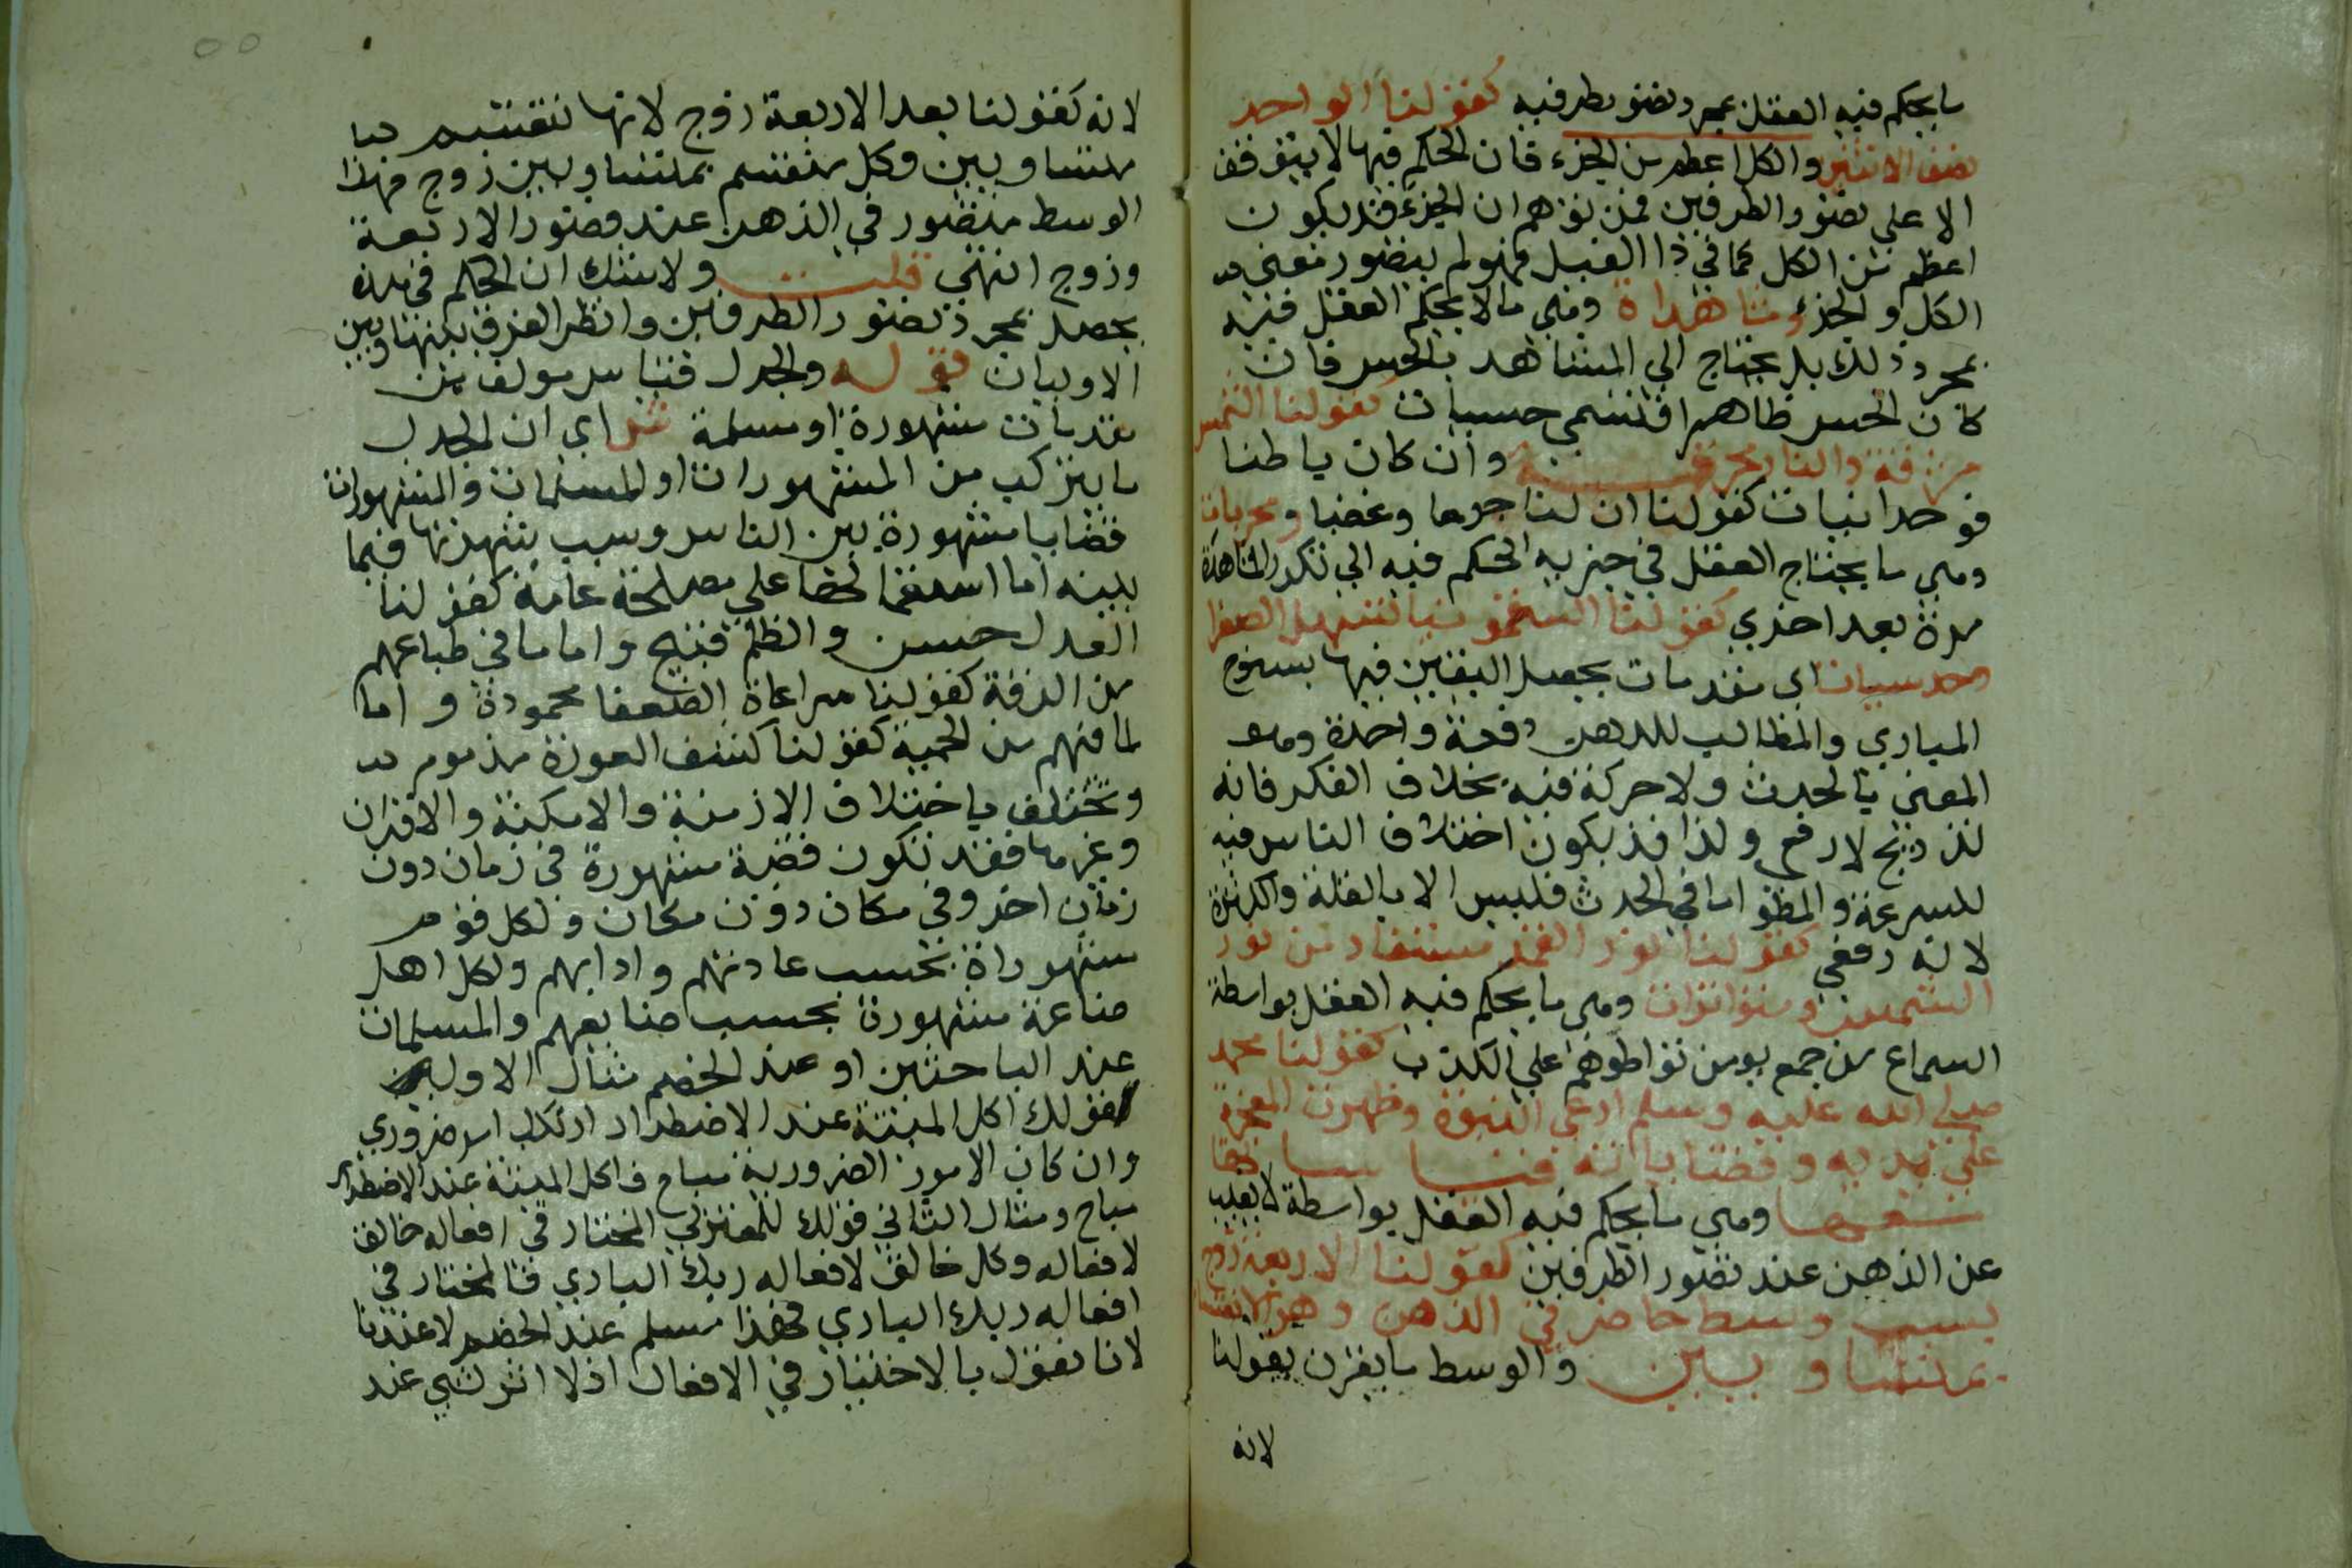 ما يحكم فيه العقل بمجرد تصور طرفيه كقولنا الواحد
نصف الاثنين والكل اعظم من الجزء فان الحكم فيها لا يتوقف
الا على تصور الطرفين فمن توهم ان الجزء قد يكون
اعظم من الكل كما في ذا الفيل فهو لم يتصور معنى
الكل والجزء ومشاهداة وهي مالا يحكم العقل فيه
بمجرد ذلك بل يحتاج الي المشاهد بالحس فان
كان الحس ظاهرا فتسمي حسيات كقولنا الشمس
مشرقة والنار محرقة وان كان باطنا
فوحدانيات كقولنا ان لنا جوعا وغضبا ومجربات
وهي ما يحتاج العقل في جزبه الحكم فيه الي تكرر المشاهدة
مرة بعد اخري كقولنا السقمونيا تسهل الصفرا
وحدسيات اي مقدمات يحصل اليقين فيها بسنوح
المبادي والمطالب للذهن دفعة واحدة وهو
المعنى بالحدث ولا حركة فيه بخلاف الفكر فانه
تدريج لا دفع ولذا قد يكون اختلاف الناس فيه
للسرعة والبطؤ اما في الحدث فليس الا بالقلة والكثرة
لانه دفعي كقولنا نور القمر مستفاد من نور
الشمس ومتواترات وهي ما يحكم فيه العقل بواسطة
السماع من جمع يومن تواطوهم علي الكذب كقولنا محمد
صلي الله عليه وسلم ادعي النبوة وظهرت المعجزة
علي يديه وقضايا قياساتها
معها وهي ما يحكم فيه العقل بواسطة لا تغيب
عن الذهن عند تصور الطرفين كقولنا الاربعة زوج
بسبب وسط حاضر في الذهن وهو الانقسام
بمتساويين والوسط ما يقرن بقولنا
لانه
لانه كقولنا بعد الاربعة زوج لانها تنقسم
بمتساويين وكل منقسم بمتساويين زوج فهذا
الوسط متصور في الذهن عند تصور الاربعة
وزوج انتهي قلت ولا شك ان الحكم في هذه
يحصل بمجرد تصور الطرفين وانظر الفرق بينها وبين
الاوليات قوله والجدل قياس مولف من
مقدمات مشهورة او مسلمة ش اي ان الجدل
ما يتركب من المشهورات او المسلمات والمشهورات
قضايا مشهورة بين الناس وسبب شهرتها فيما
بينه اما اشتمالها على مصلحة عامة كقولنا
العدل حسن والظلم قبيح واما ما في طباعهم
من الرقة كقولنا مراعاة الضعفا محمودة واما
لما فيهم من الحمية كقولنا كشف العورة مذموم
وتختلف باختلاف الازمنة والامكنة والاقران
وغيرها فقد تكون قضية مشهورة في زمان دون
زمان اخر وفي مكان دون مكان ولكل قوم
مشهوراة بحسب عادتهم وادابهم ولكل اهل
صناعة مشهورة بحسب صنايعهم والمسلمات
عند الباحثين او عند الخصم مثال الاول
كقولك اكل الميتة عند الاضطرار ارتكاب امر ضروري
وان كان الامور الضرورية مباح فاكل الميتة عند الاضطرار
مباح ومثال الثاني قولك للمعتزلي المختار في افعاله خالق
لافعاله وكل خالق لافعاله ربك الباري فالمختار في
افعاله ربك الباري فهذا مسلم عند الخصم لا عندنا
لانا نقول بالاختيار في الافعال اذ لا اثر لشي عند